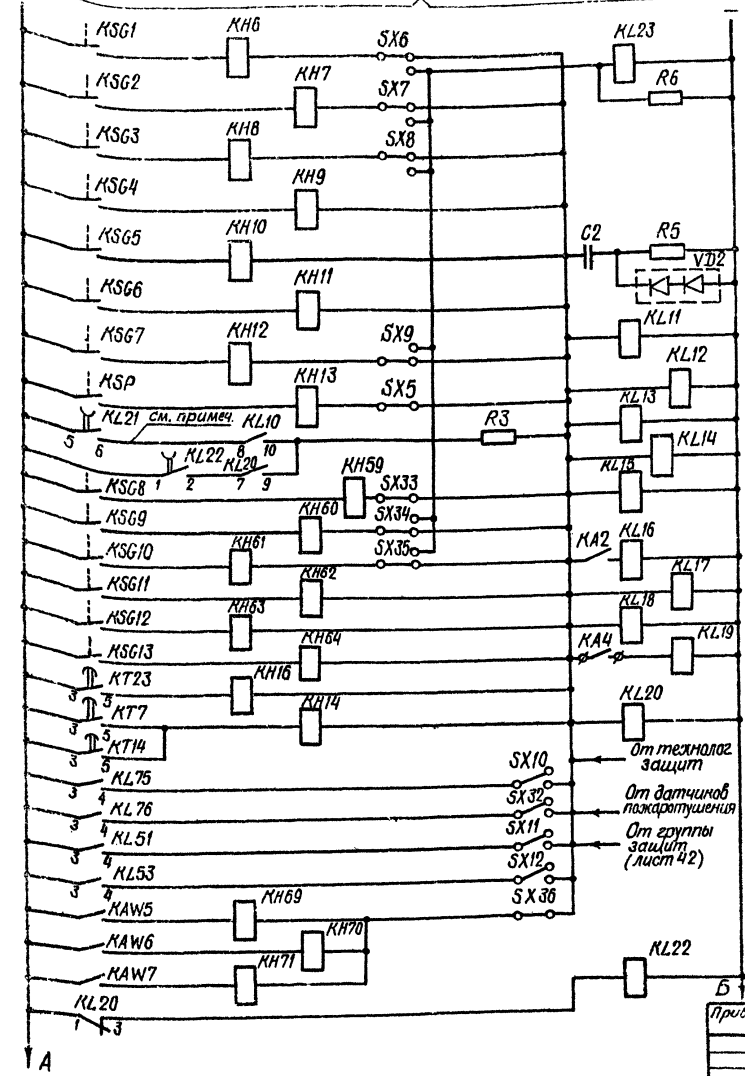 KSG1 KH6 SX6 KL23
KSG2 KH7 SX7 R6
KSG3 KH8 SX8
KSG4 KH9
KSG5 KH10 C2 R5
VD2
KSG6 KH11
KSG7 KH12 SX9 KL11
KSP KH13 SX5 KL12
KL21 см. примеч. KL10 R3 KL13
5 6 8 10
KL22 KL20 KL14
1 2 7 9
KSG8 KH59 SX33 KL15
KSG9 KH60 SX34
KSG10 KH61 SX35 KA2 KL16
KSG11 KH62 KL17
KSG12 KH63 KL18
KSG13 KH64 KA4 KL19
KT23 KH16
3 5
KT7 KH14 KL20
3 5
KT14
3 5
От технолог
защит
KL75 SX10
3 4
KL76 SX32
3 4
От датчиков
пожаротушения
KL51 SX11
3 4
От группы
защит
(лист 42)
KL53 SX12
3 4
KAW5 KH69 SX36
KAW6 KH70
KAW7 KH71 KL22
KL20
1 3
Б
А
Прив